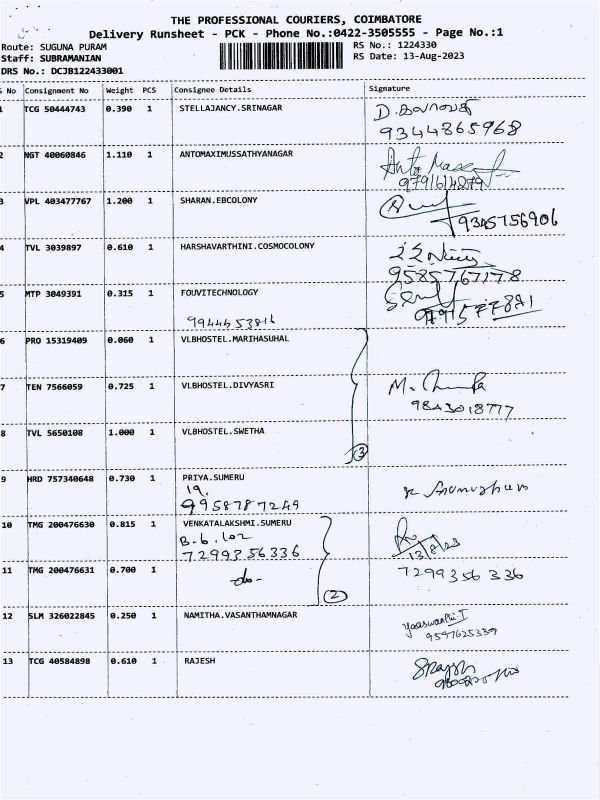 THE PROFESSIONAL COURIERS, COIMBATORE
Delivery Runsheet - PCK - Phone No.:0422-3505555 - Page No.:1
Route: SUGUNA PURAM RS No.: 1224330
Staff: SUBRAMANIAN RS Date: 13-Aug-2023
DRS No.: DCJB122433001
S No Consignment No Weight PCS Consignee Details Signature
1 TCG 50444743 0.390 1 STELLAJANCY.SRINAGAR
9344865968
2 NGT 40060846 1.110 1 ANTOMAXIMUSSATHYANAGAR
3 VPL 403477767 1.200 1 SHARAN.EBCOLONY
9345756906
4 TVL 3039897 0.610 1 HARSHAVARTHINI.COSMOCOLONY
9585767178
5 MTP 3049391 0.315 1 FOUVITECHNOLOGY
6 PRO 15319409 0.060 1 VLBHOSTEL.MARIHASUHAL
7 TEN 7566059 0.725 1 VLBHOSTEL.DIVYASRI
9843018777
8 TVL 5650108 1.000 1 VLBHOSTEL.SWETHA
3
9 HRD 757340648 0.730 1 PRIYA.SUMERU
19.
9958787249
10 TMG 200476630 0.815 1 VENKATALAKSHMI.SUMERU
13/8/23
7299356336
11 TMG 200476631 0.700 1 7299356336
-do-
2
12 SLM 326022845 0.250 1 NAMITHA.VASANTHAMNAGAR
9597625339
13 TCG 40584898 0.610 1 RAJESH